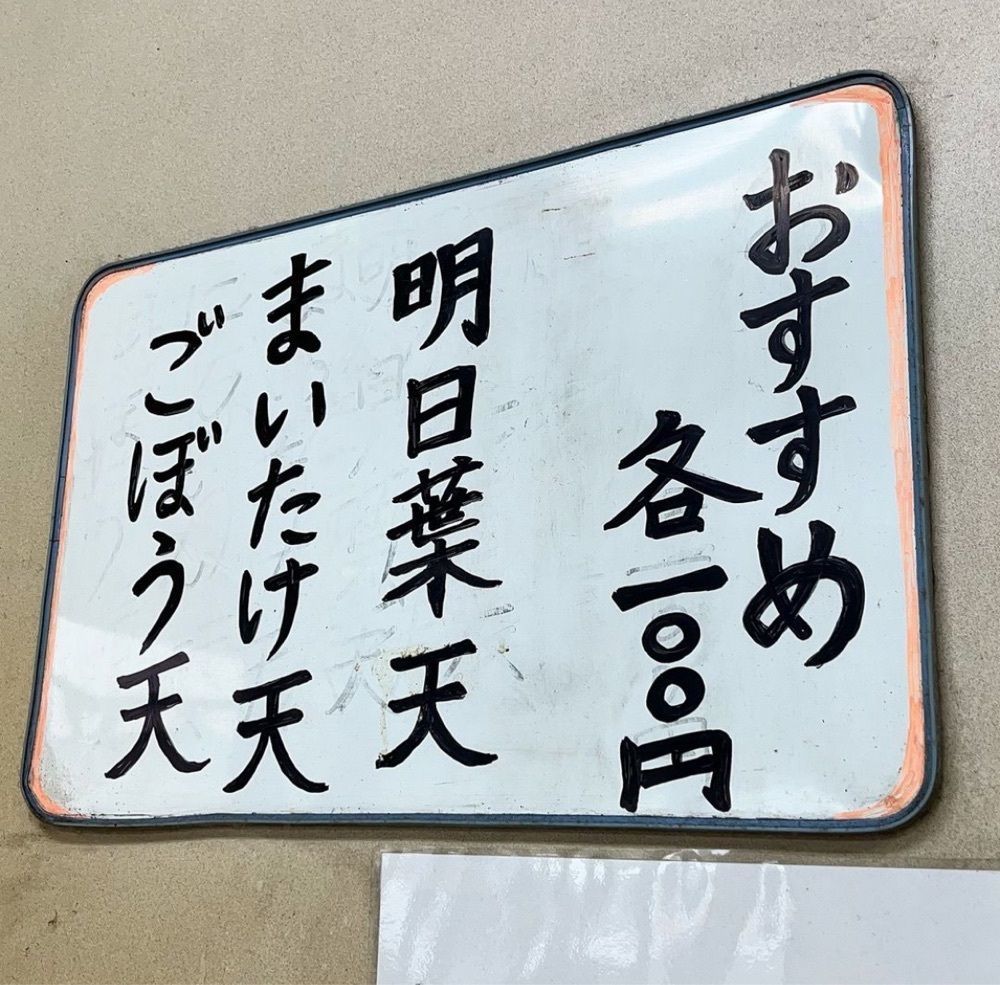 おすすめ
各一〇〇円
明日葉天
まいたけ天
ごぼう天